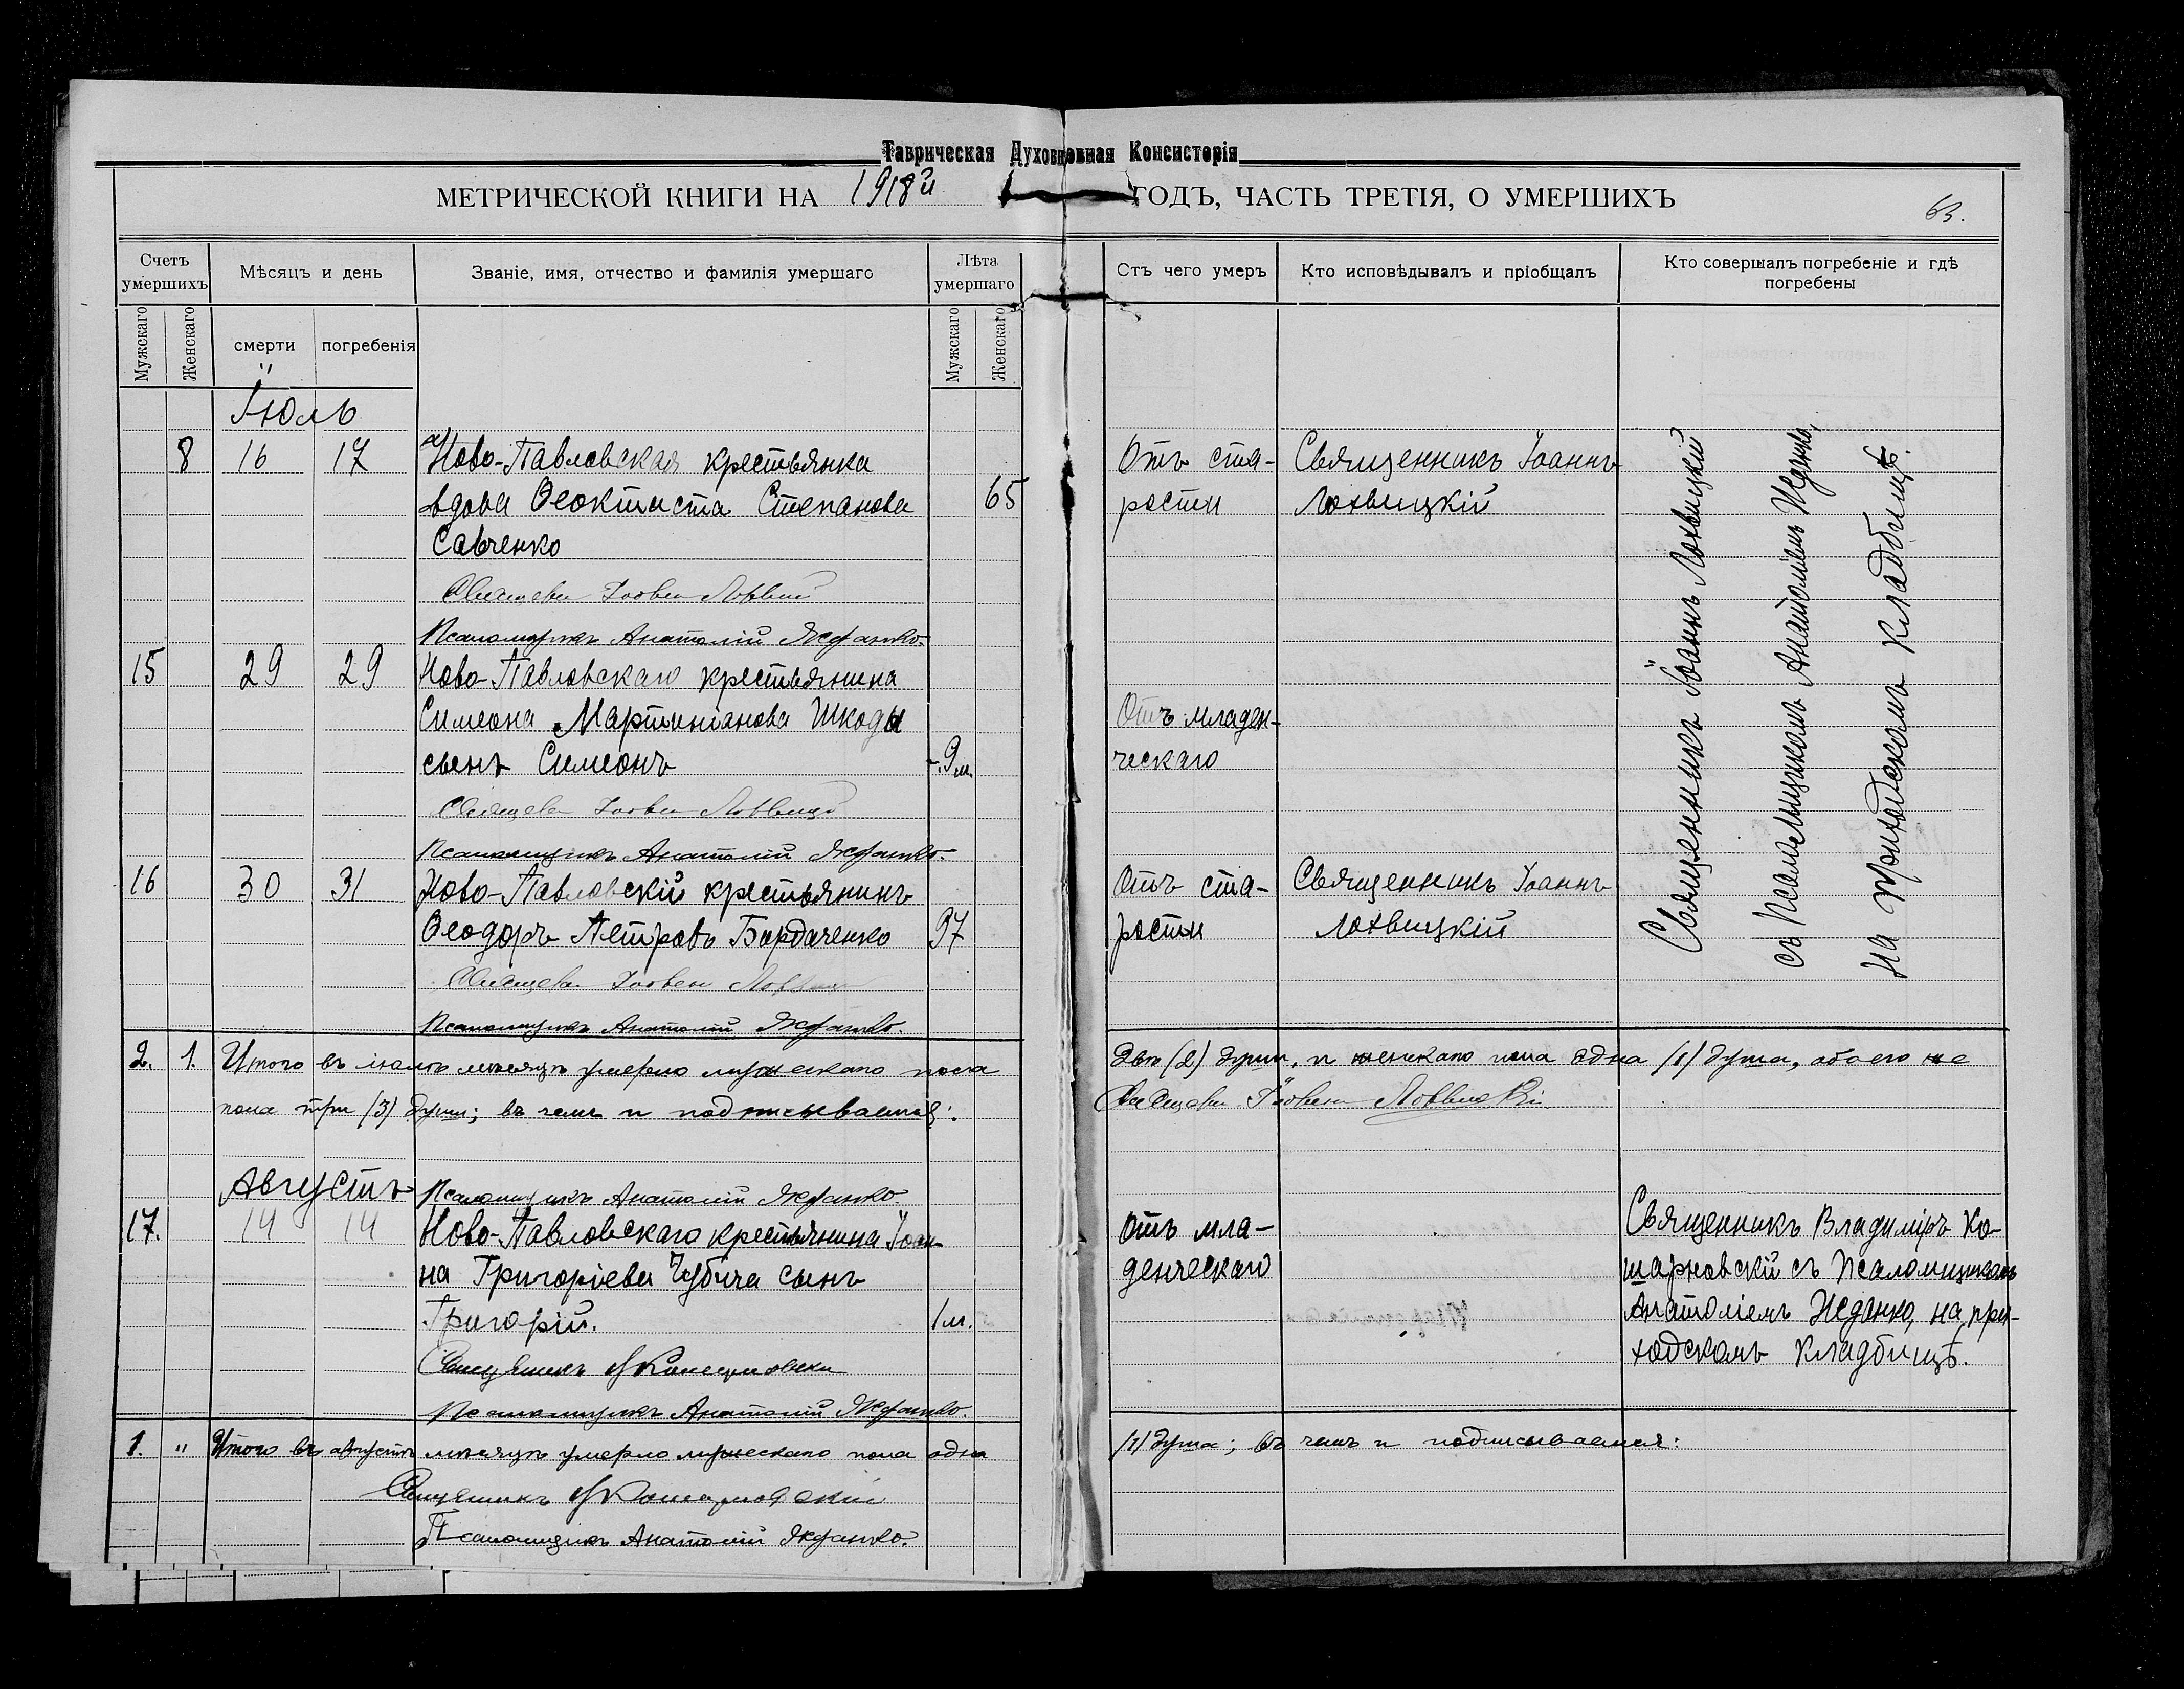 Таврическая Духовновная Консисторія
МЕТРИЧЕСКОЙ КНИГИ НА 1918й ГОДЪ, ЧАСТЬ ТРЕТІЯ, О УМЕРШИХЪ
63.
Счетъ умершихъ
Мѣсяцъ и день
Званіе, имя, отчество и фамилія умершаго
Лѣта умершаго
Стъ чего умеръ
Кто исповѣдывалъ и пріобщалъ
Кто совершалъ погребеніе и гдѣ
погребены
Мужскаго
Женскаго
смерти
погребенія
Мужскаго
Женскаго
Іюль
8 16 17 Ново-Павловская крестьянка
вдова Ѳеоктиста Степанова 65
Савченко
Отъ ста-
рости
Священникъ Іоаннъ
Лохвицкій
Псаломщикъ Анатолій
15 29 29 Ново-Павловскаго крестьянина
Симеона Мартиніанова Шкоды
сынъ Симеонъ 9 м.
Отъ младен-
ческаго
Псаломщикъ Анатолій
16 30 31 Ново-Павловскій крестьянинъ
Ѳеодоръ Петровъ Бардаченко 97
Отъ ста-
рости
Священникъ Іоаннъ
Лохвицкій
Псаломщикъ Анатолій
Священникъ Іоаннъ Лохвицкій
съ Псаломщикомъ Анатоліемъ
на приходскомъ кладбищѣ.
2. 1. Итого въ іюлѣ мѣсяцѣ умерло мужескаго пола двѣ (2) души, и женскаго пола одна (1) душа, обоего же
пола три (3) души; въ чемъ и подписываемся:
Псаломщикъ Анатолій
Августъ
17. 14 14 Ново-Павловскаго крестьянина Іоан-
на Григоріева Чубича сынъ
Григорій. 1 м.
Отъ мла-
денческаго
Священникъ Владиміръ Ко-
шарновскій съ Псаломщикомъ
Анатоліемъ на при-
ходскомъ кладбищѣ.
Священникъ
Псаломщикъ Анатолій
1. " Итого въ августѣ мѣсяцѣ умерло мужескаго пола одна (1) душа; въ чемъ и подписываемся:
Священникъ
Псаломщикъ Анатолій